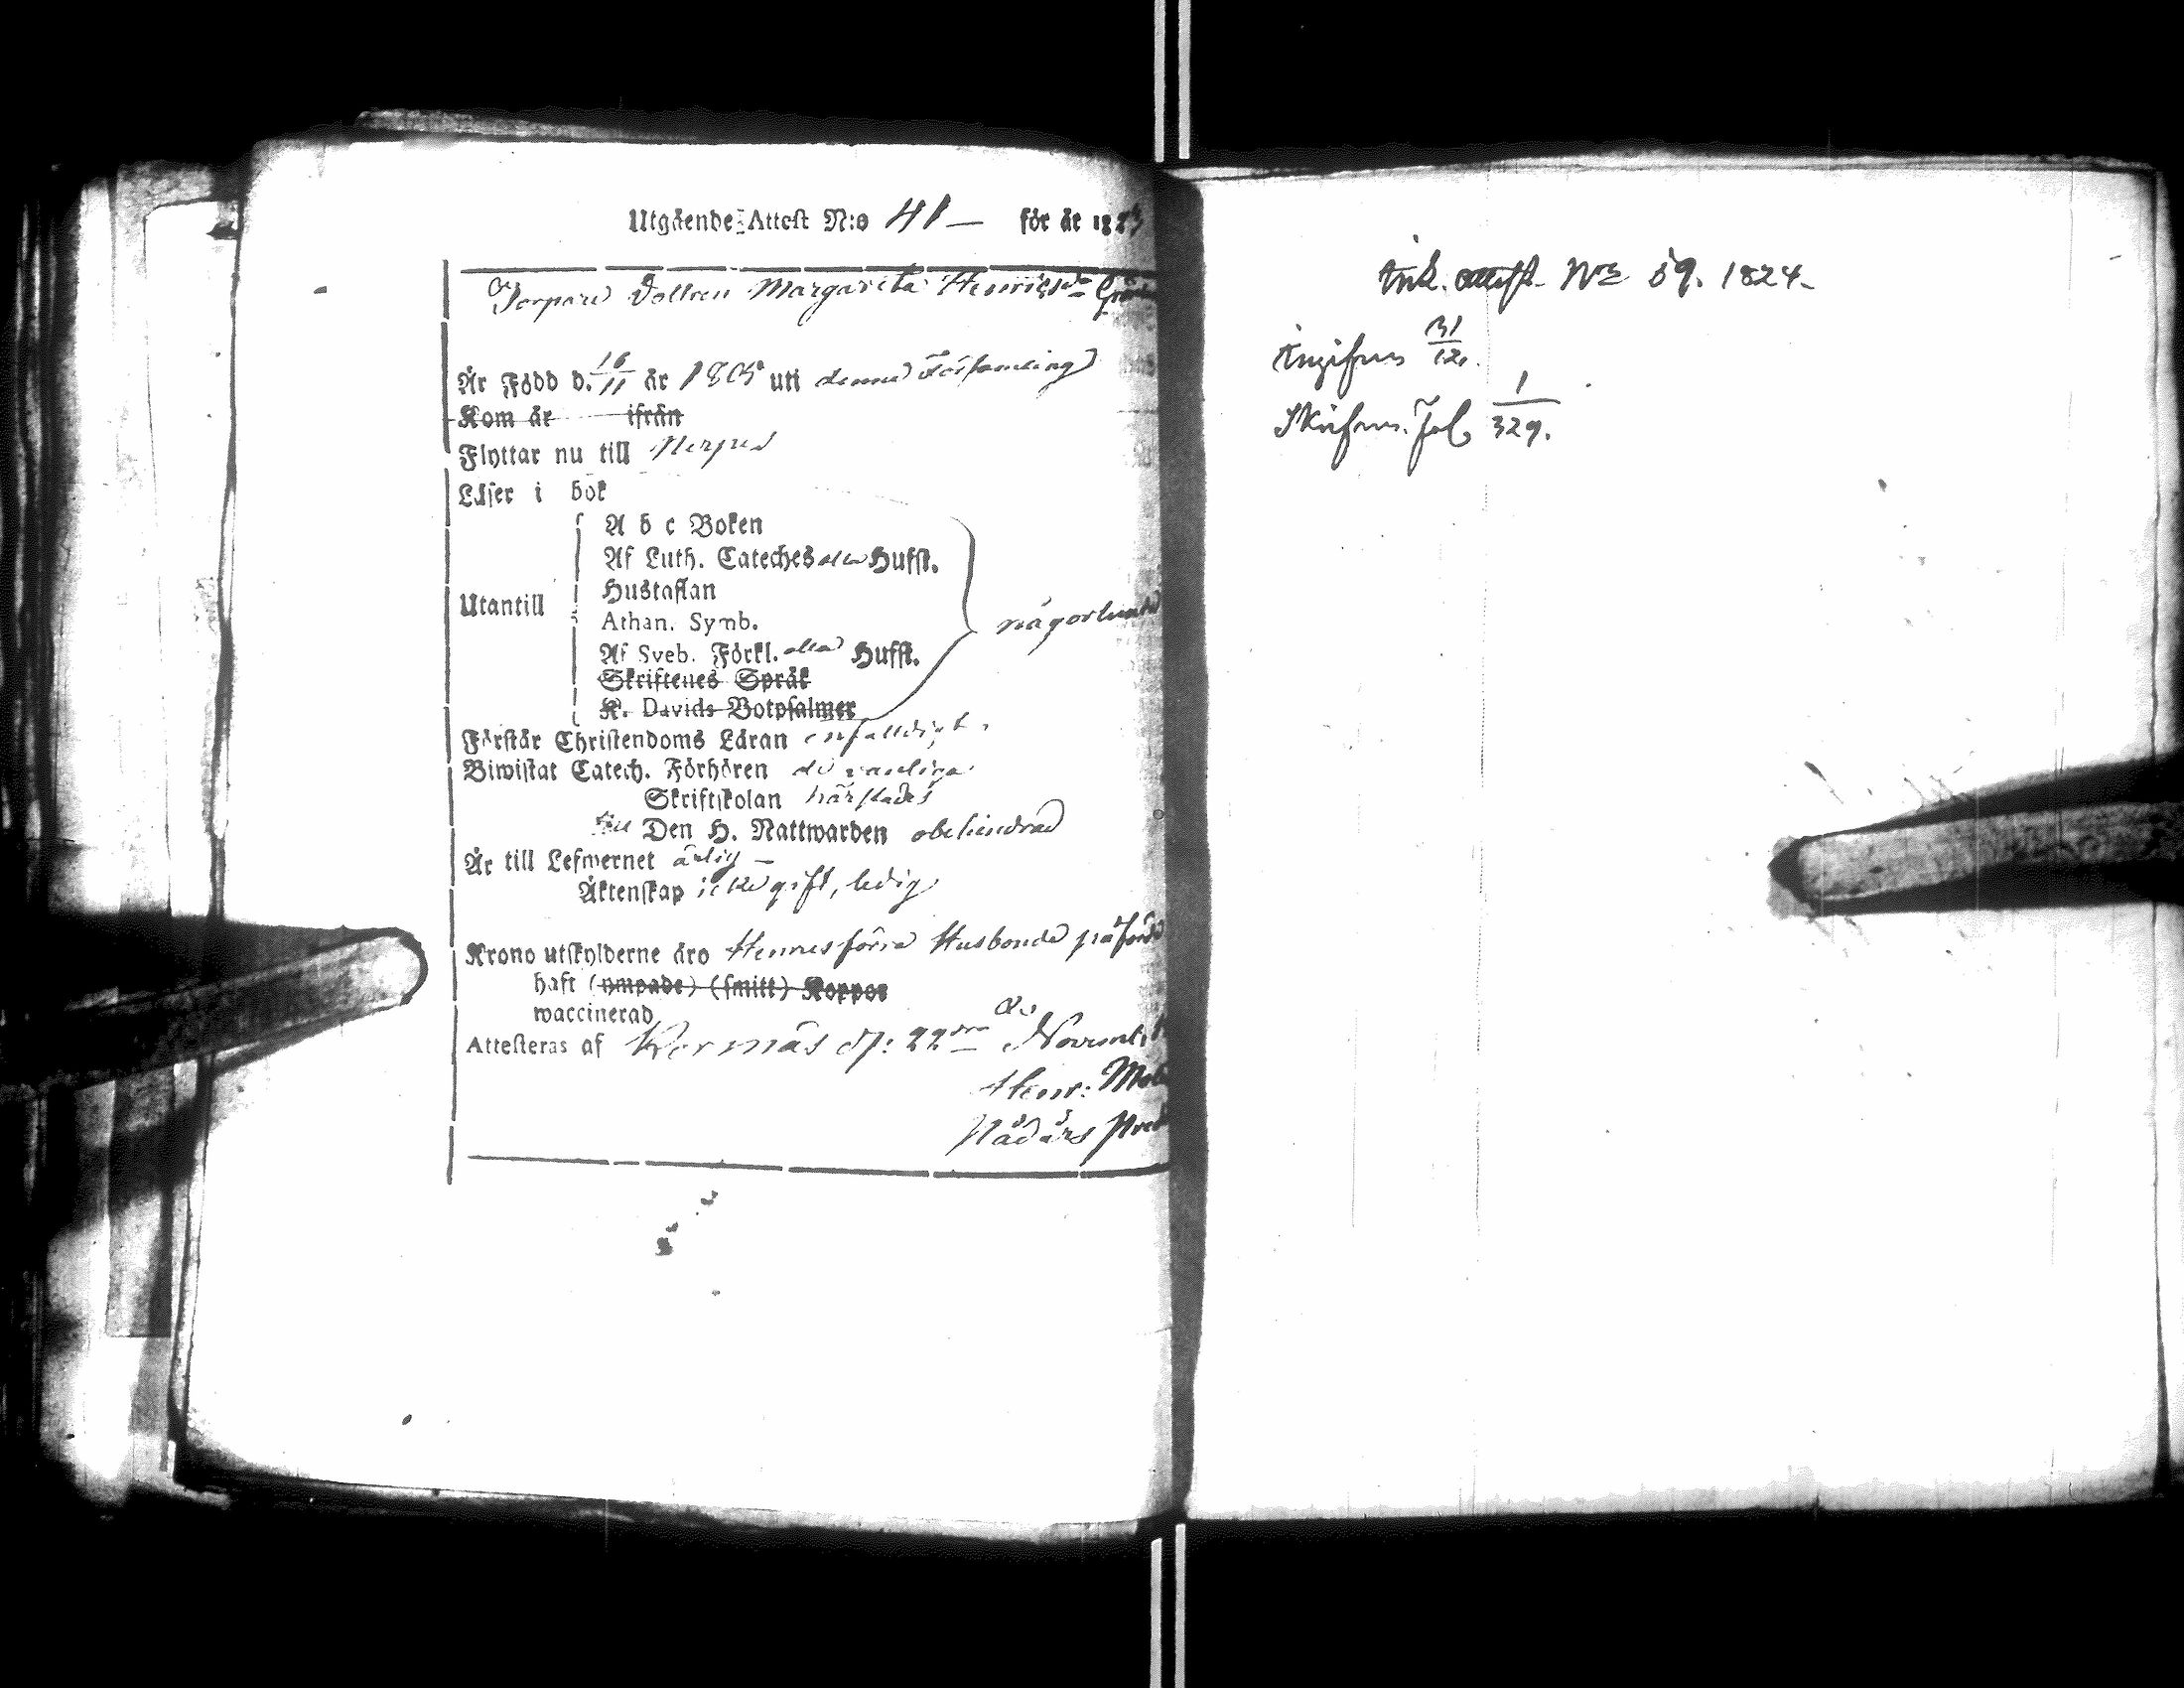 Utgående Attest N:o 41 — för år 1823
Torpare Dottren Margareta Henricsdr
Är Född d. 16/11 år 1805 uti denna Församling
Kom år ifrån
Flyttar nu till Nerpes
Läser i bok
A b c Boken
Af Luth. Cateches alla Hufst.
Hustaflan
Utantill
Athan. Symb.
någorlunda
Af Sveb. Förkl. alla Hufst.
Skriftenes Språk
K. Davids Botpsalmer
Förstår Christendoms Läran enfaldigt.
Biwistat Catech. Förhören de vanliga
Skriftskolan härstädes
till Den H. Nattwarden obehindrad
Är till Lefwernet ärlig —
Äktenskap icke gift, ledig
Krono utskylderne äro Hennes förra Husbonde påförde
haft (ympade) (smitt) Koppor
waccinerad
Attesteras af Kors näs d: 22dra Novemb.
Henr.
Nådårs
Ink. attest. No 59. 1824.
Ingifven 31/12.
Skrifven. Fol. 1/329.